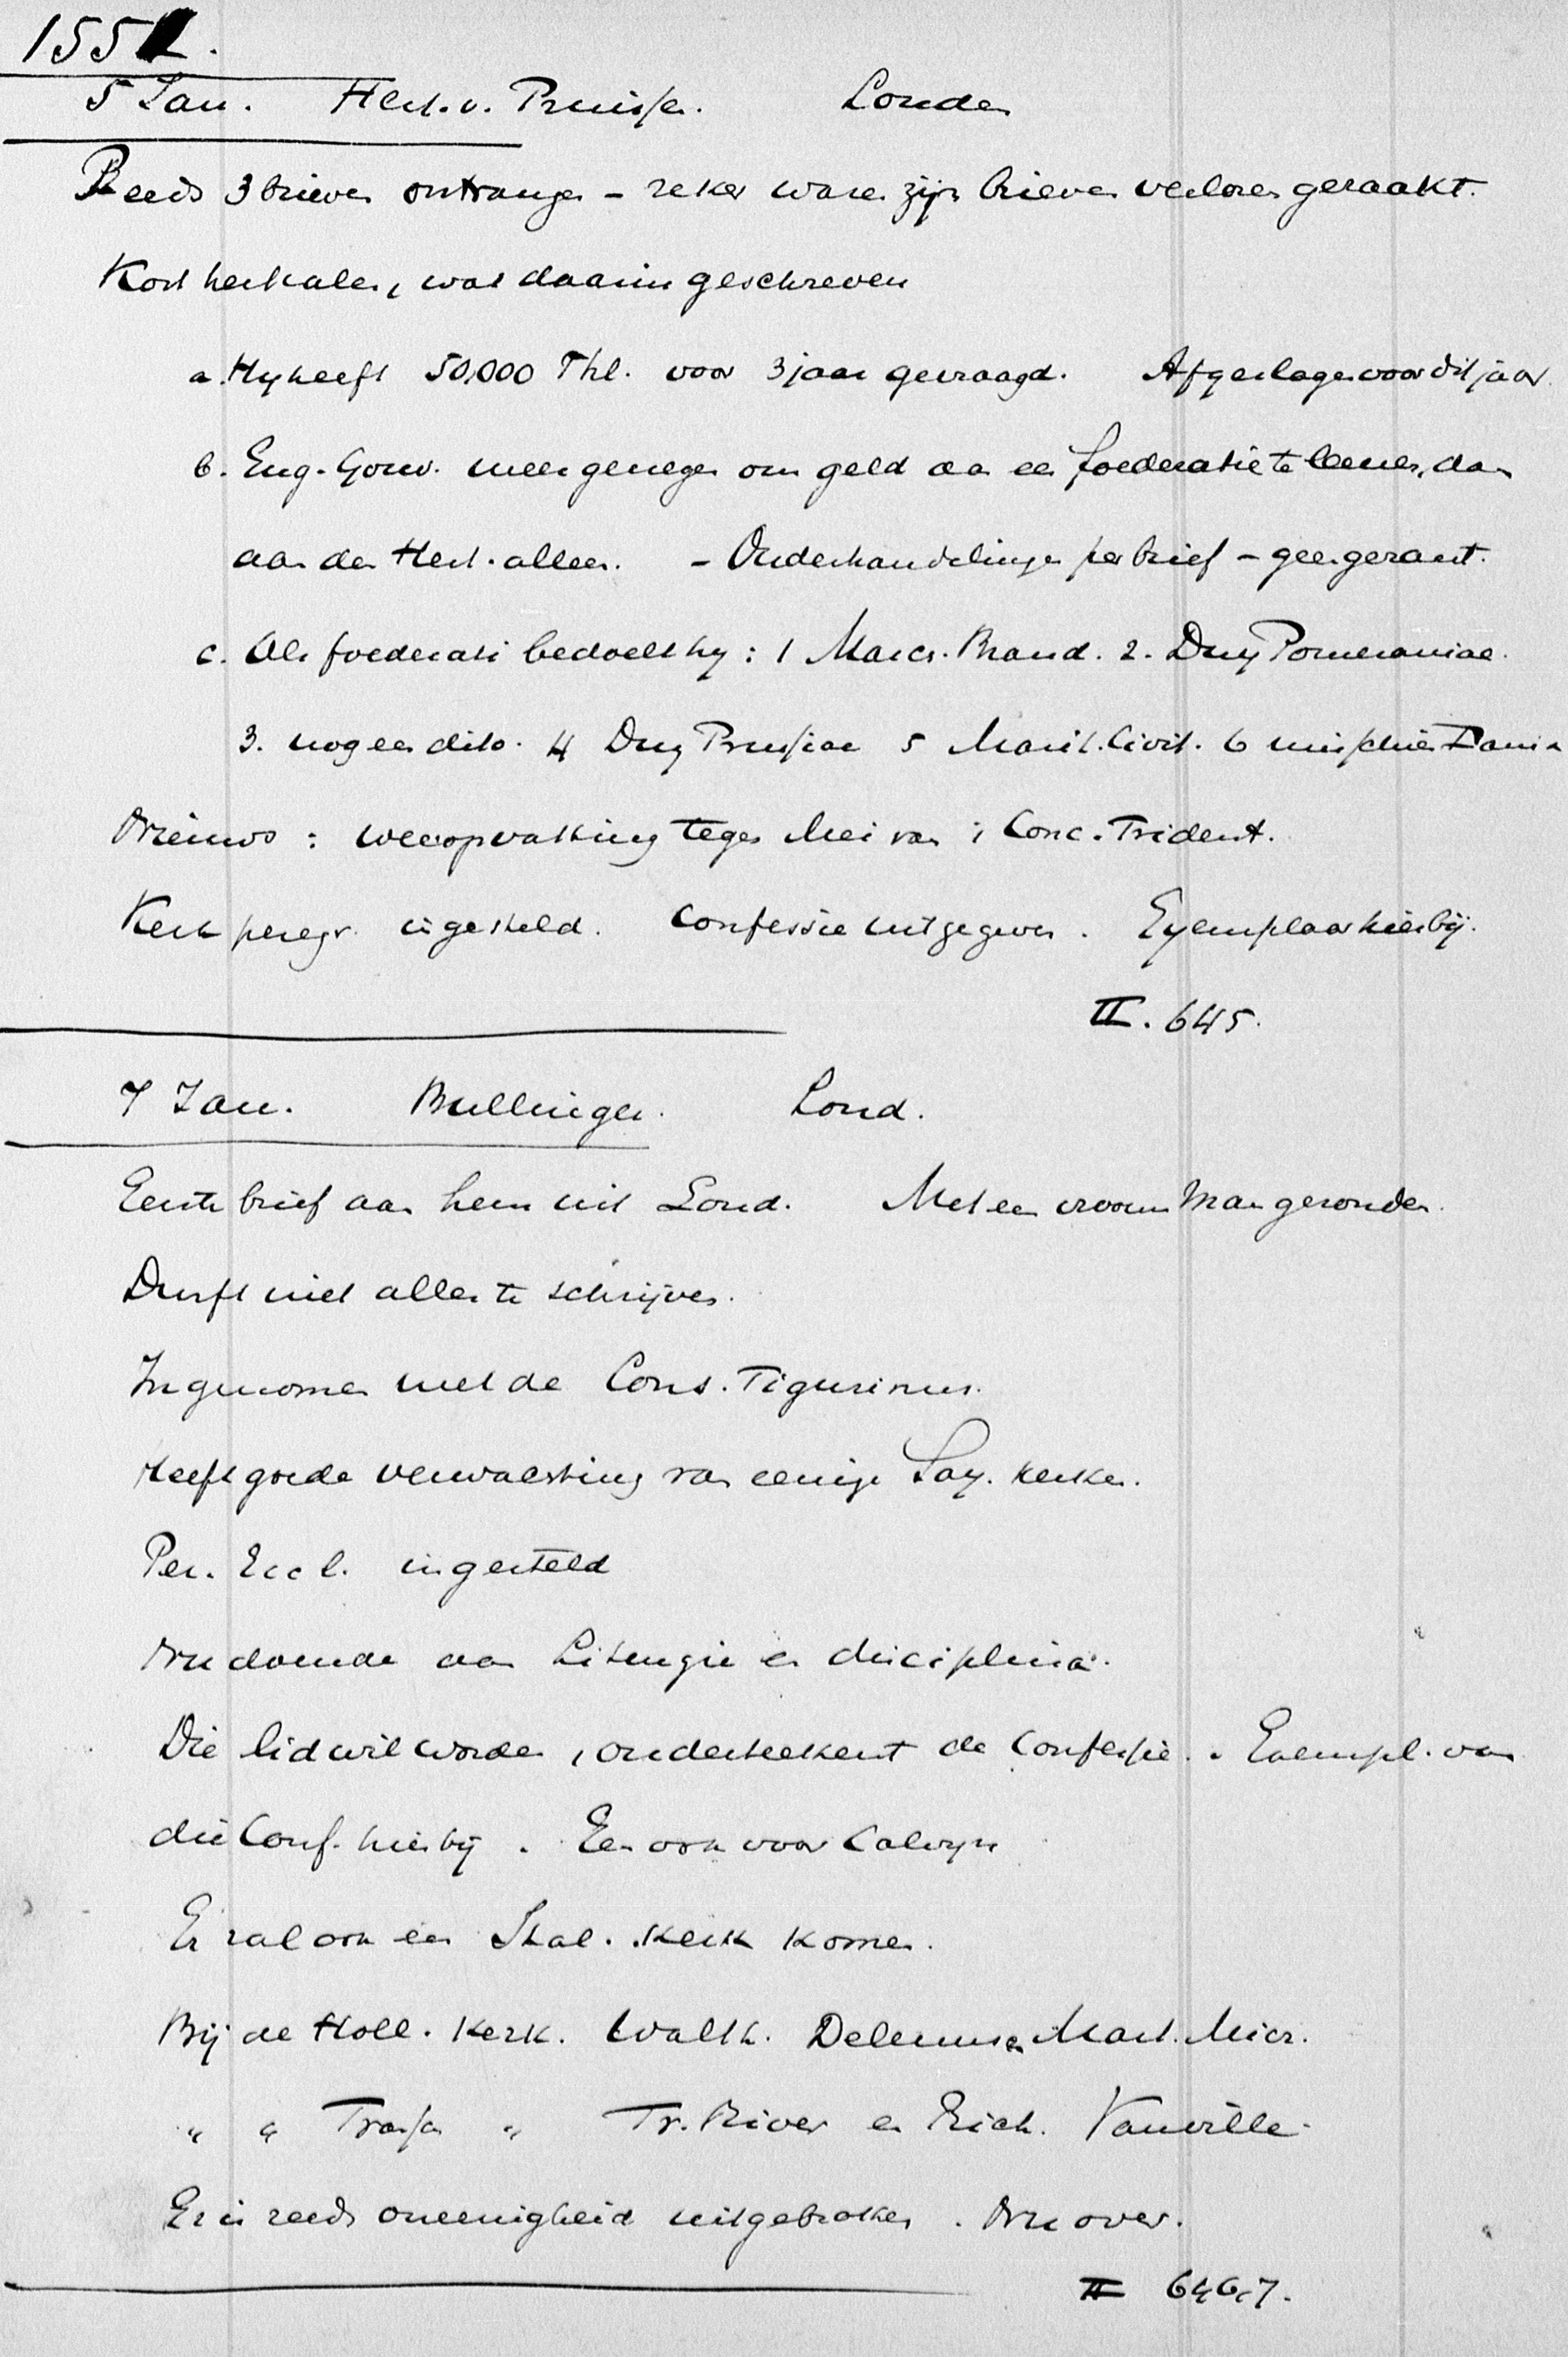 1551.
5 Jan. Hert. v. Pruisse. Londen
Reeds 3 brieven ontvangen – zeker waren zijn brieven verloren geraakt.
Kort herhalen, wat daarin geschreven
a. Hy heeft 50.000 Thl. voor 3 jaar gevraagd. Afgeslagen voor dit jaar.
b. Eng. Gouv. meer genegen om geld aan een foederatie te leenen, dan
aan den Hert. alleen. – Onderhandelingen per brief – geen gezant.
c. Als foederati bedoelt hy: 1 March. Brand. 2. Dux Pomeraniae.
3. nog een dito. 4 Dux Prussiae 5 Marit. Civit. 6 misschien Dania
Nieuws: weeropvatting tegen Mei van 't Conc. Trident.
Kerk peregr. ingesteld. Confessie uitgegeven. Exemplaar hierbij.
II. 645.
7 Jan. Bullinger. Lond.
Eerste brief aan hem uit Lond. Met een vroom man gezonden.
Durft niet alles te schrijven.
Ingenomen met de Cons. Tigurinus.
Heeft goede verwachting van eenige Sax. kerken.
Per. Eccl. ingesteld
Nu doende aan Liturgie en disciplina.
Die lid wil worden, onderteekent de Confessie. Exempl. van
die Conf. hierbij. Een ook voor Calvyn
Er zal ook een Ital. Kerk komen.
Bij de Holl. Kerk. Walth. Delenus en Mart. Micr.
" " Fransche " Fr. River en Rich. Vauville.
Er is reeds oneenigheid uitgebroken. Nu over.
II 646,7.